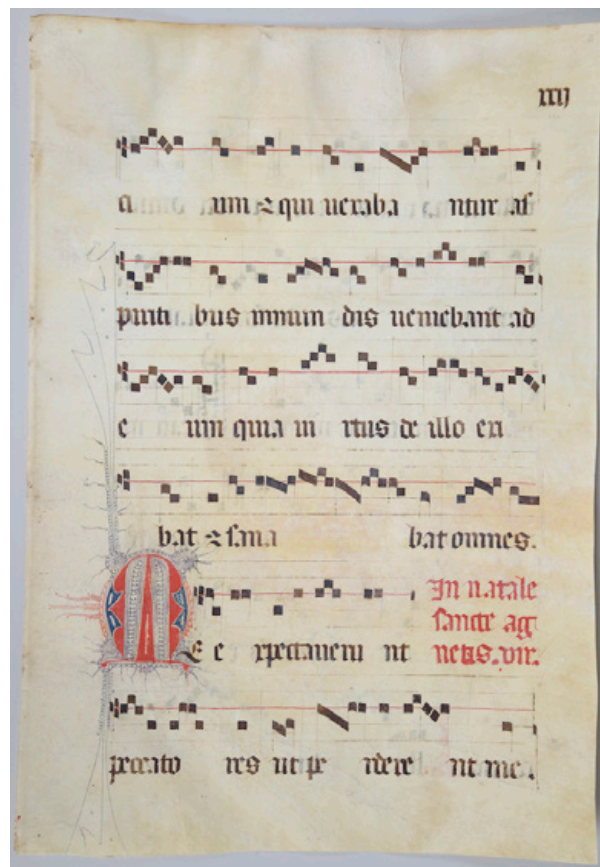 xxij
ci um ⁊ qui uexaba ntur a s
piriti bus inmun dis ueniebant ad
e um quia ui rtus de illo exi
bat ⁊ sana bat omnes.
In natale
sancte ag
netis. vir.
ME e xpectaueru nt
peccato res ut pe rdere nt me.